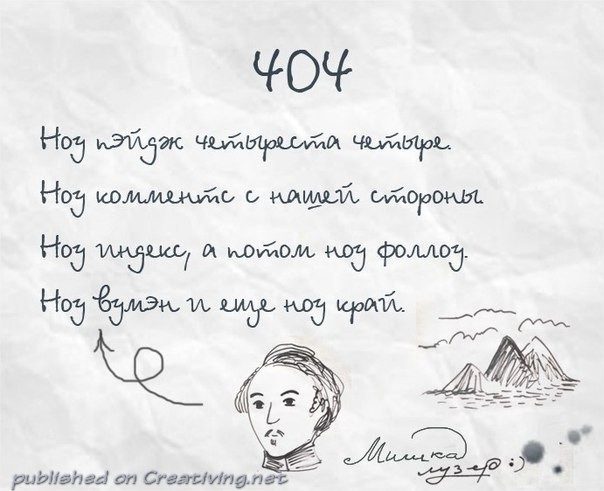 404
Ноу пэйдж четыреста четыре.
Ноу комментс с нашей стороны.
Ноу индекс, а потом ноу фоллоу.
Ноу вумэн и еще ноу край.
Мишка
лузер :)
published on Creativing.net